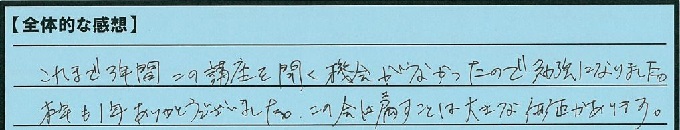 【全体的な感想】
これまで3年間この講座を聞く機会がなかったので勉強になりました。
本年も1年ありがとうございました。この会は すことは大きな価値があります。